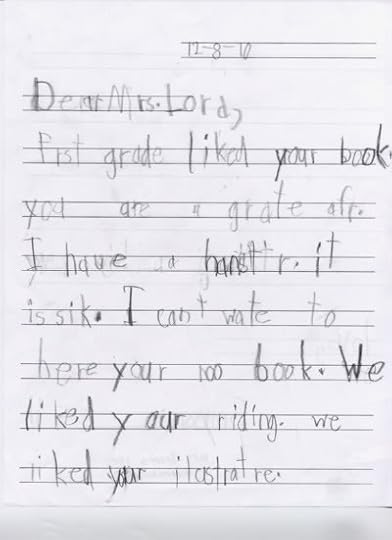 12-8-10
Dear Mrs. Lord,
first grade liked your book.
you are a grate afr.
I have a hamstr. it
is sik. I can't wate to
here your 100 book. We
liked your riding. we
liked your ilustratre.